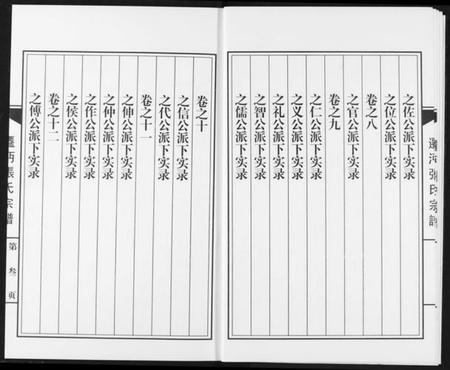 之佐公派下实录
之位公派下实录
卷之八
之官公派下实录
卷之九
之仁公派下实录
之义公派下实录
之礼公派下实录
之智公派下实录
之儒公派下实录
卷之十
之信公派下实录
之代公派下实录
卷之十一
之伸公派下实录
之仲公派下实录
之作公派下实录
之侯公派下实录
卷之十二
之傅公派下实录
張氏宗譜
第叁页